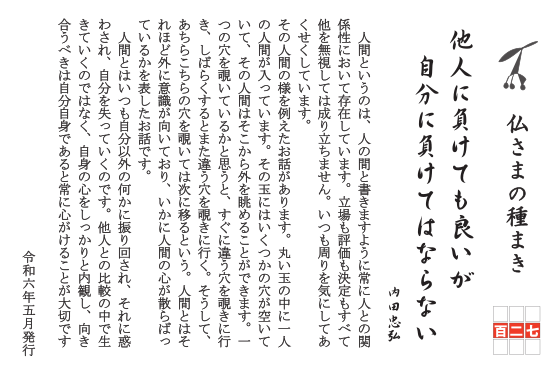 仏さまの種まき
百二七
他人に負けても良いが
自分に負けてはならない
内田忠弘
人間というのは、人の間と書きますように常に人との関
係性において存在しています。立場も評価も決定もすべて
他を無視しては成り立ちません。いつも周りを気にしてあ
くせくしています。
その人間の様を例えたお話があります。丸い玉の中に一人
の人間が入っています。その玉にはいくつかの穴が空いて
いて、その人間はそこから外を眺めることができます。一
つの穴を覗いているかと思うと、すぐに違う穴を覗きに行
き、しばらくするとまた違う穴を覗きに行く。そうして、
あちらこちらの穴を覗いては次に移るという。人間とはそ
れほど外に意識が向いており、いかに人間の心が散らばっ
ているかを表したお話です。
人間とはいつも自分以外の何かに振り回され、それに惑
わされ、自分を失っていくのです。他人との比較の中で生
きていくのではなく、自身の心をしっかりと内観し、向き
合うべきは自分自身であると常に心がけることが大切です
令和六年五月発行